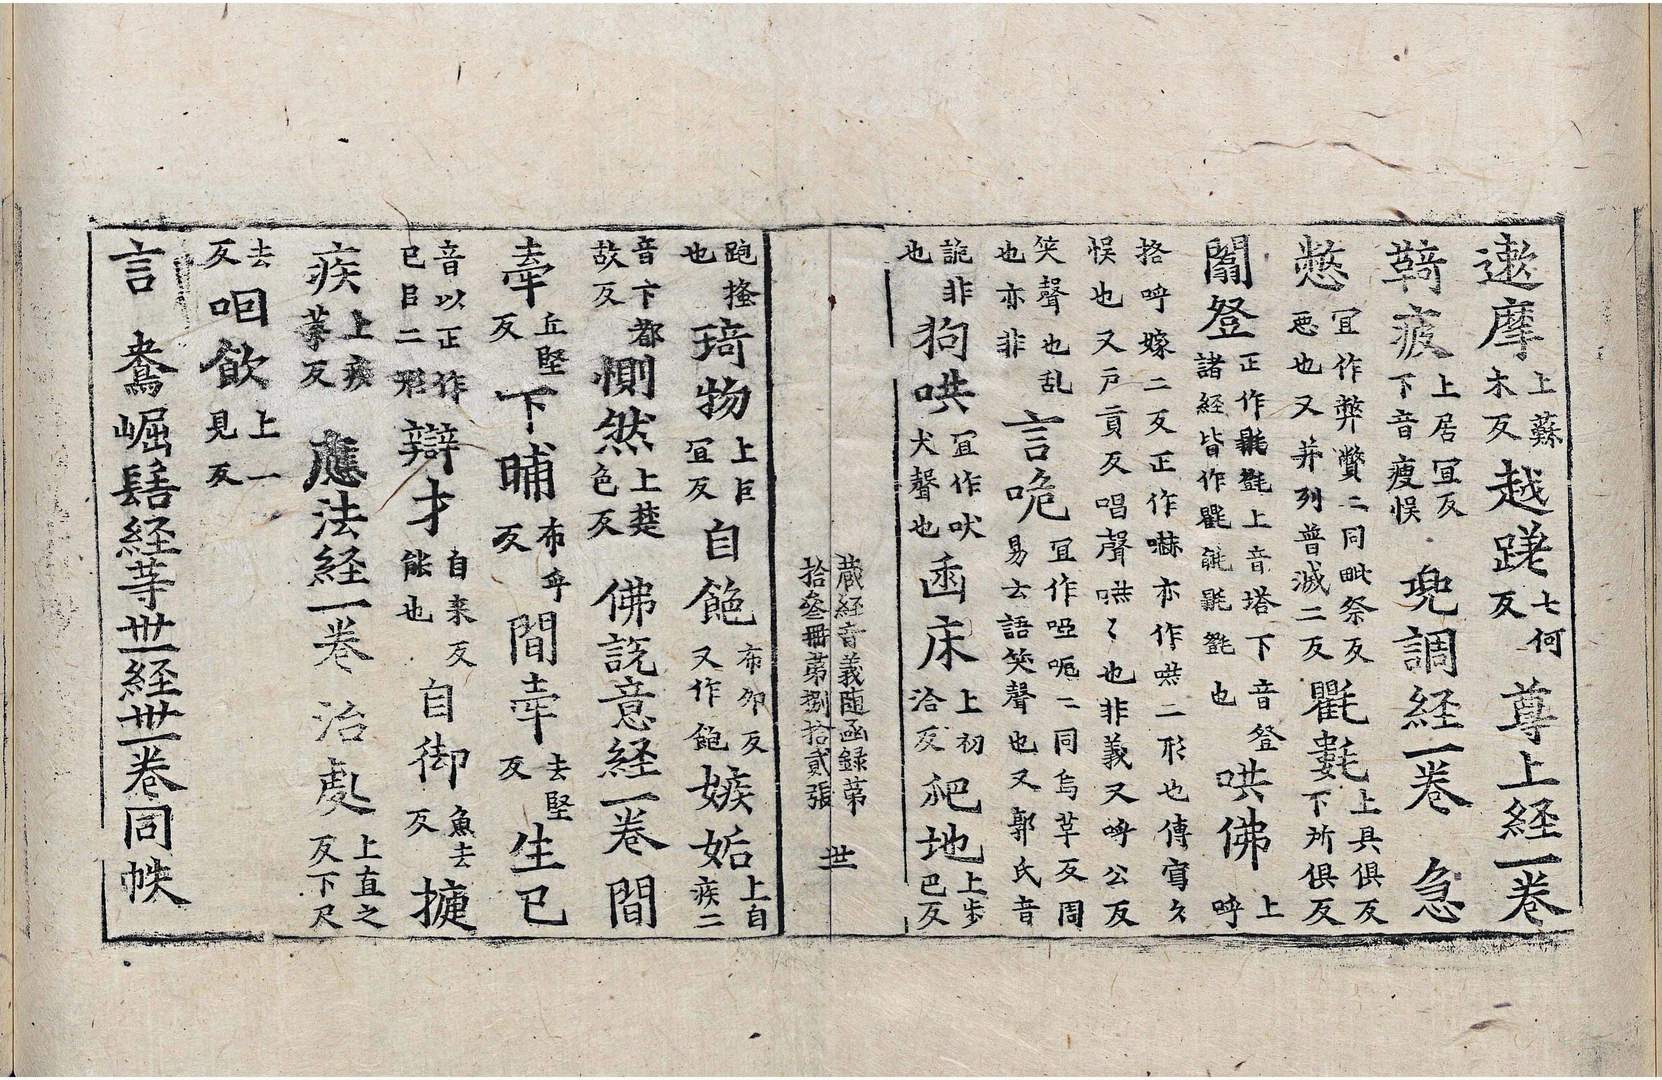 遬摩上蘇木反越蹉七何反尊上経一卷
鞿疲上居冝反下音瘦悮兜調経一卷急
憋冝作弊獘二同毗祭反恶也又并列普滅二反氍㲣上具俱反下所俱反
闒登正作㲩㲪上音塔下音登諸經皆作氍毹㲩㲪也哄佛上呼
挌呼嫁二反正作嚇亦作哄二形也傳寫久
悮也又戸貢反唱聲哄〻也非義又呼公反
笑聲也乱也亦非言㖉冝作啞呃二同烏革反周易云語笑聲也又郭氏音
詭非也狗哄冝作吠犬聲也臿床上初洽反爬地上步巴反
藏経音義随函録第
拾叄冊第捌拾貳張 世
跑搔也琦物上巨冝反自䬳布卯反又作飽嫉妬上自疾二
音下都故反惻然上楚色反佛說意経一卷間
牽丘堅反下晡布乎反間牽去堅反生已
音以正作已㠯二形辯才自来反能也自御魚去反㨿
疾上疾葉反應法経一卷治處上直之反下尺
去反咽飲上一見反
言 鴦崛髻経等丗一経丗一卷同帙